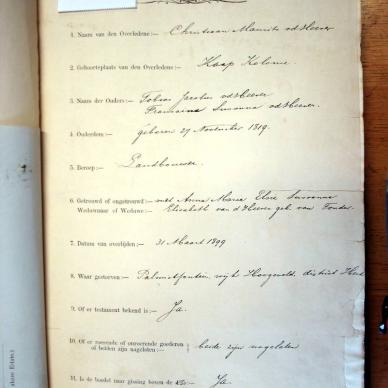 1. Naam van den Overledene:— Christiaan Maurits vd Heever
2. Geboorteplaats van den Overledene:— Kaap Kolonie.
3. Namen der Ouders:— Tobias Jacobus vd Heever
Susanna vd Heever.
4. Ouderdom:— geboren 27 November 1819.
5. Beroep:— Landbouwer.
6. Getrouwd of ongetrouwd:— met Anna Maria Elsie Susanna
Weduwnaar of Weduwe:— Elisabeth van d Heever geb van Tonder.
7. Datum van overlijden:— 31 Maart 1899
8. Waar gestorven:— Palmietfontein wijk Hoogeveld, district
9. Of er testament bekend is:— Ja.
10. Of er roerende of onroerende goederen
of beiden zijn nagelaten:— beide zijn nagelaten
11. Is de boedel naar gissing boven de Ja.